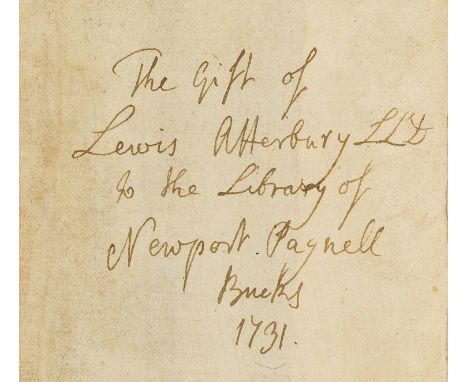 The Gift of
Lewis Atterbury LLD
to the Library of
Newport Pagnell
Bucks
1731.